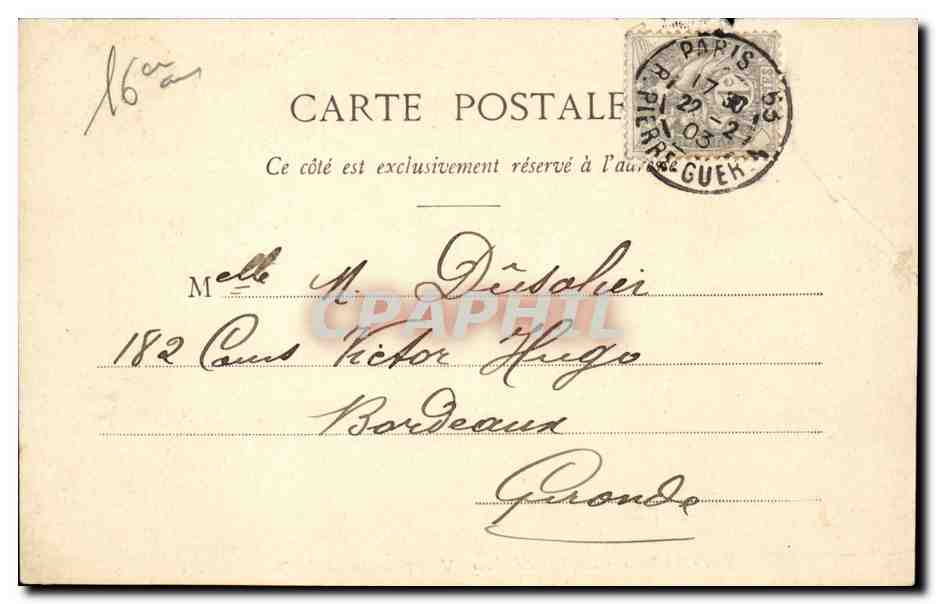 16er
PARIS 53
17 30
22 - 2
03
R. PIERRE GUERIN
CARTE POSTALE
Ce côté est exclusivement réservé à l'adresse
Melle M. Dûsolier
182 Cours Victor Hugo
Bordeaux
Gironde
CPAPHIL